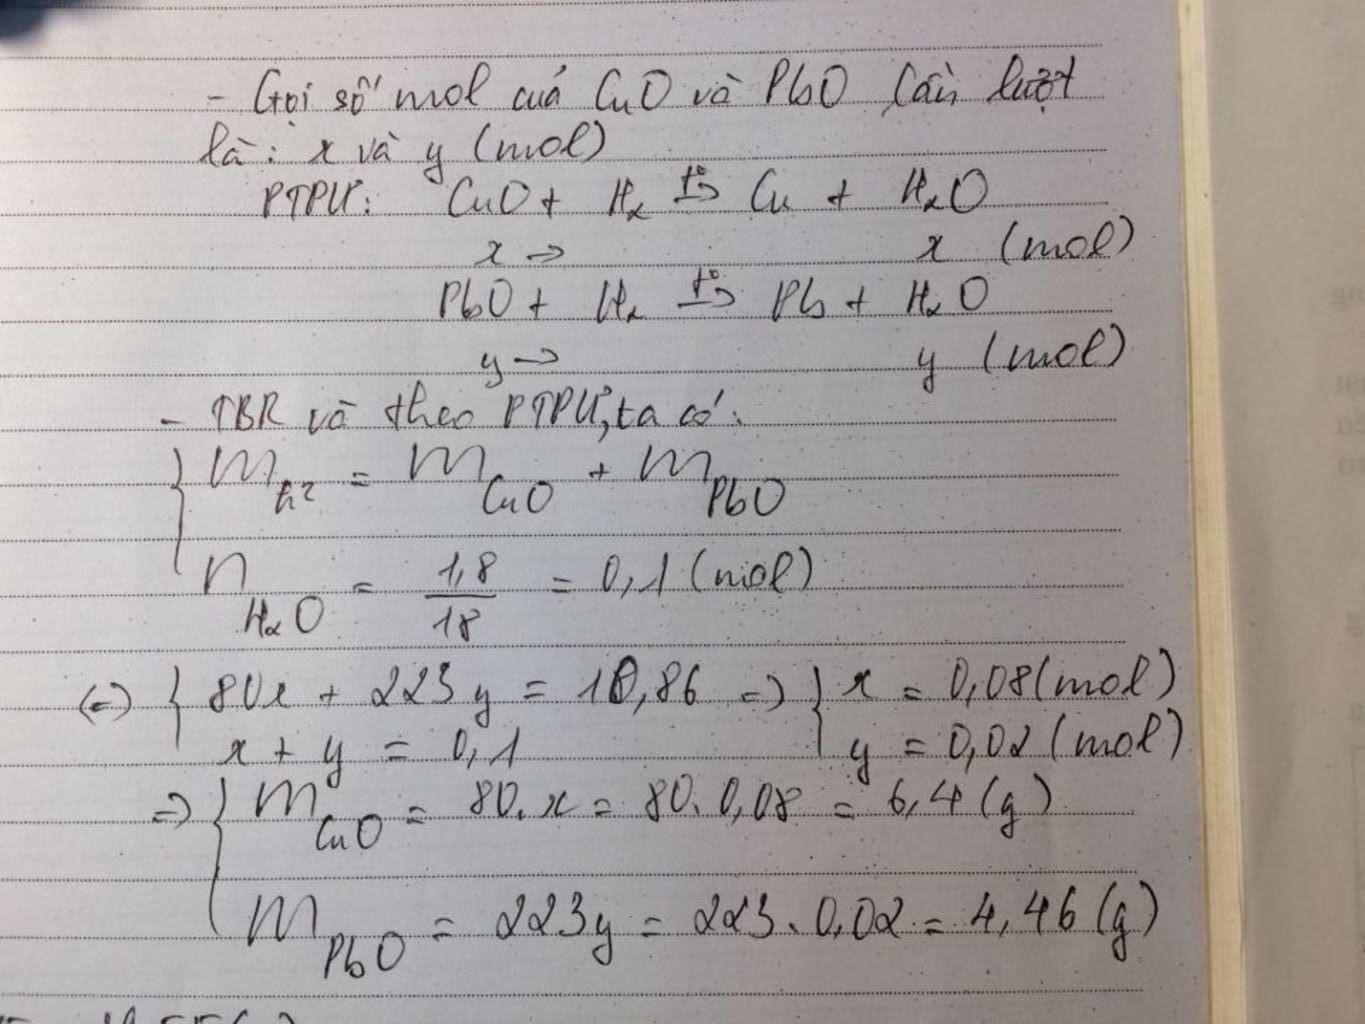 - Gọi số mol của CuO và PbO lần lượt
là: x và y (mol)
PTPƯ: CuO + H₂ t°→ Cu + H₂O
x → x (mol)
PbO + H₂ t°→ Pb + H₂O
y → y (mol)
- TBR và theo PTPƯ, ta có:
{ m h² = m CuO + m PbO
n H₂O = 1,8/18 = 0,1 (mol)
(=) { 80x + 223y = 10,86 => { x = 0,08 (mol)
x + y = 0,1 y = 0,02 (mol)
=> { m CuO = 80.x = 80.0,08 = 6,4 (g)
m PbO = 223y = 223.0,02 = 4,46 (g)